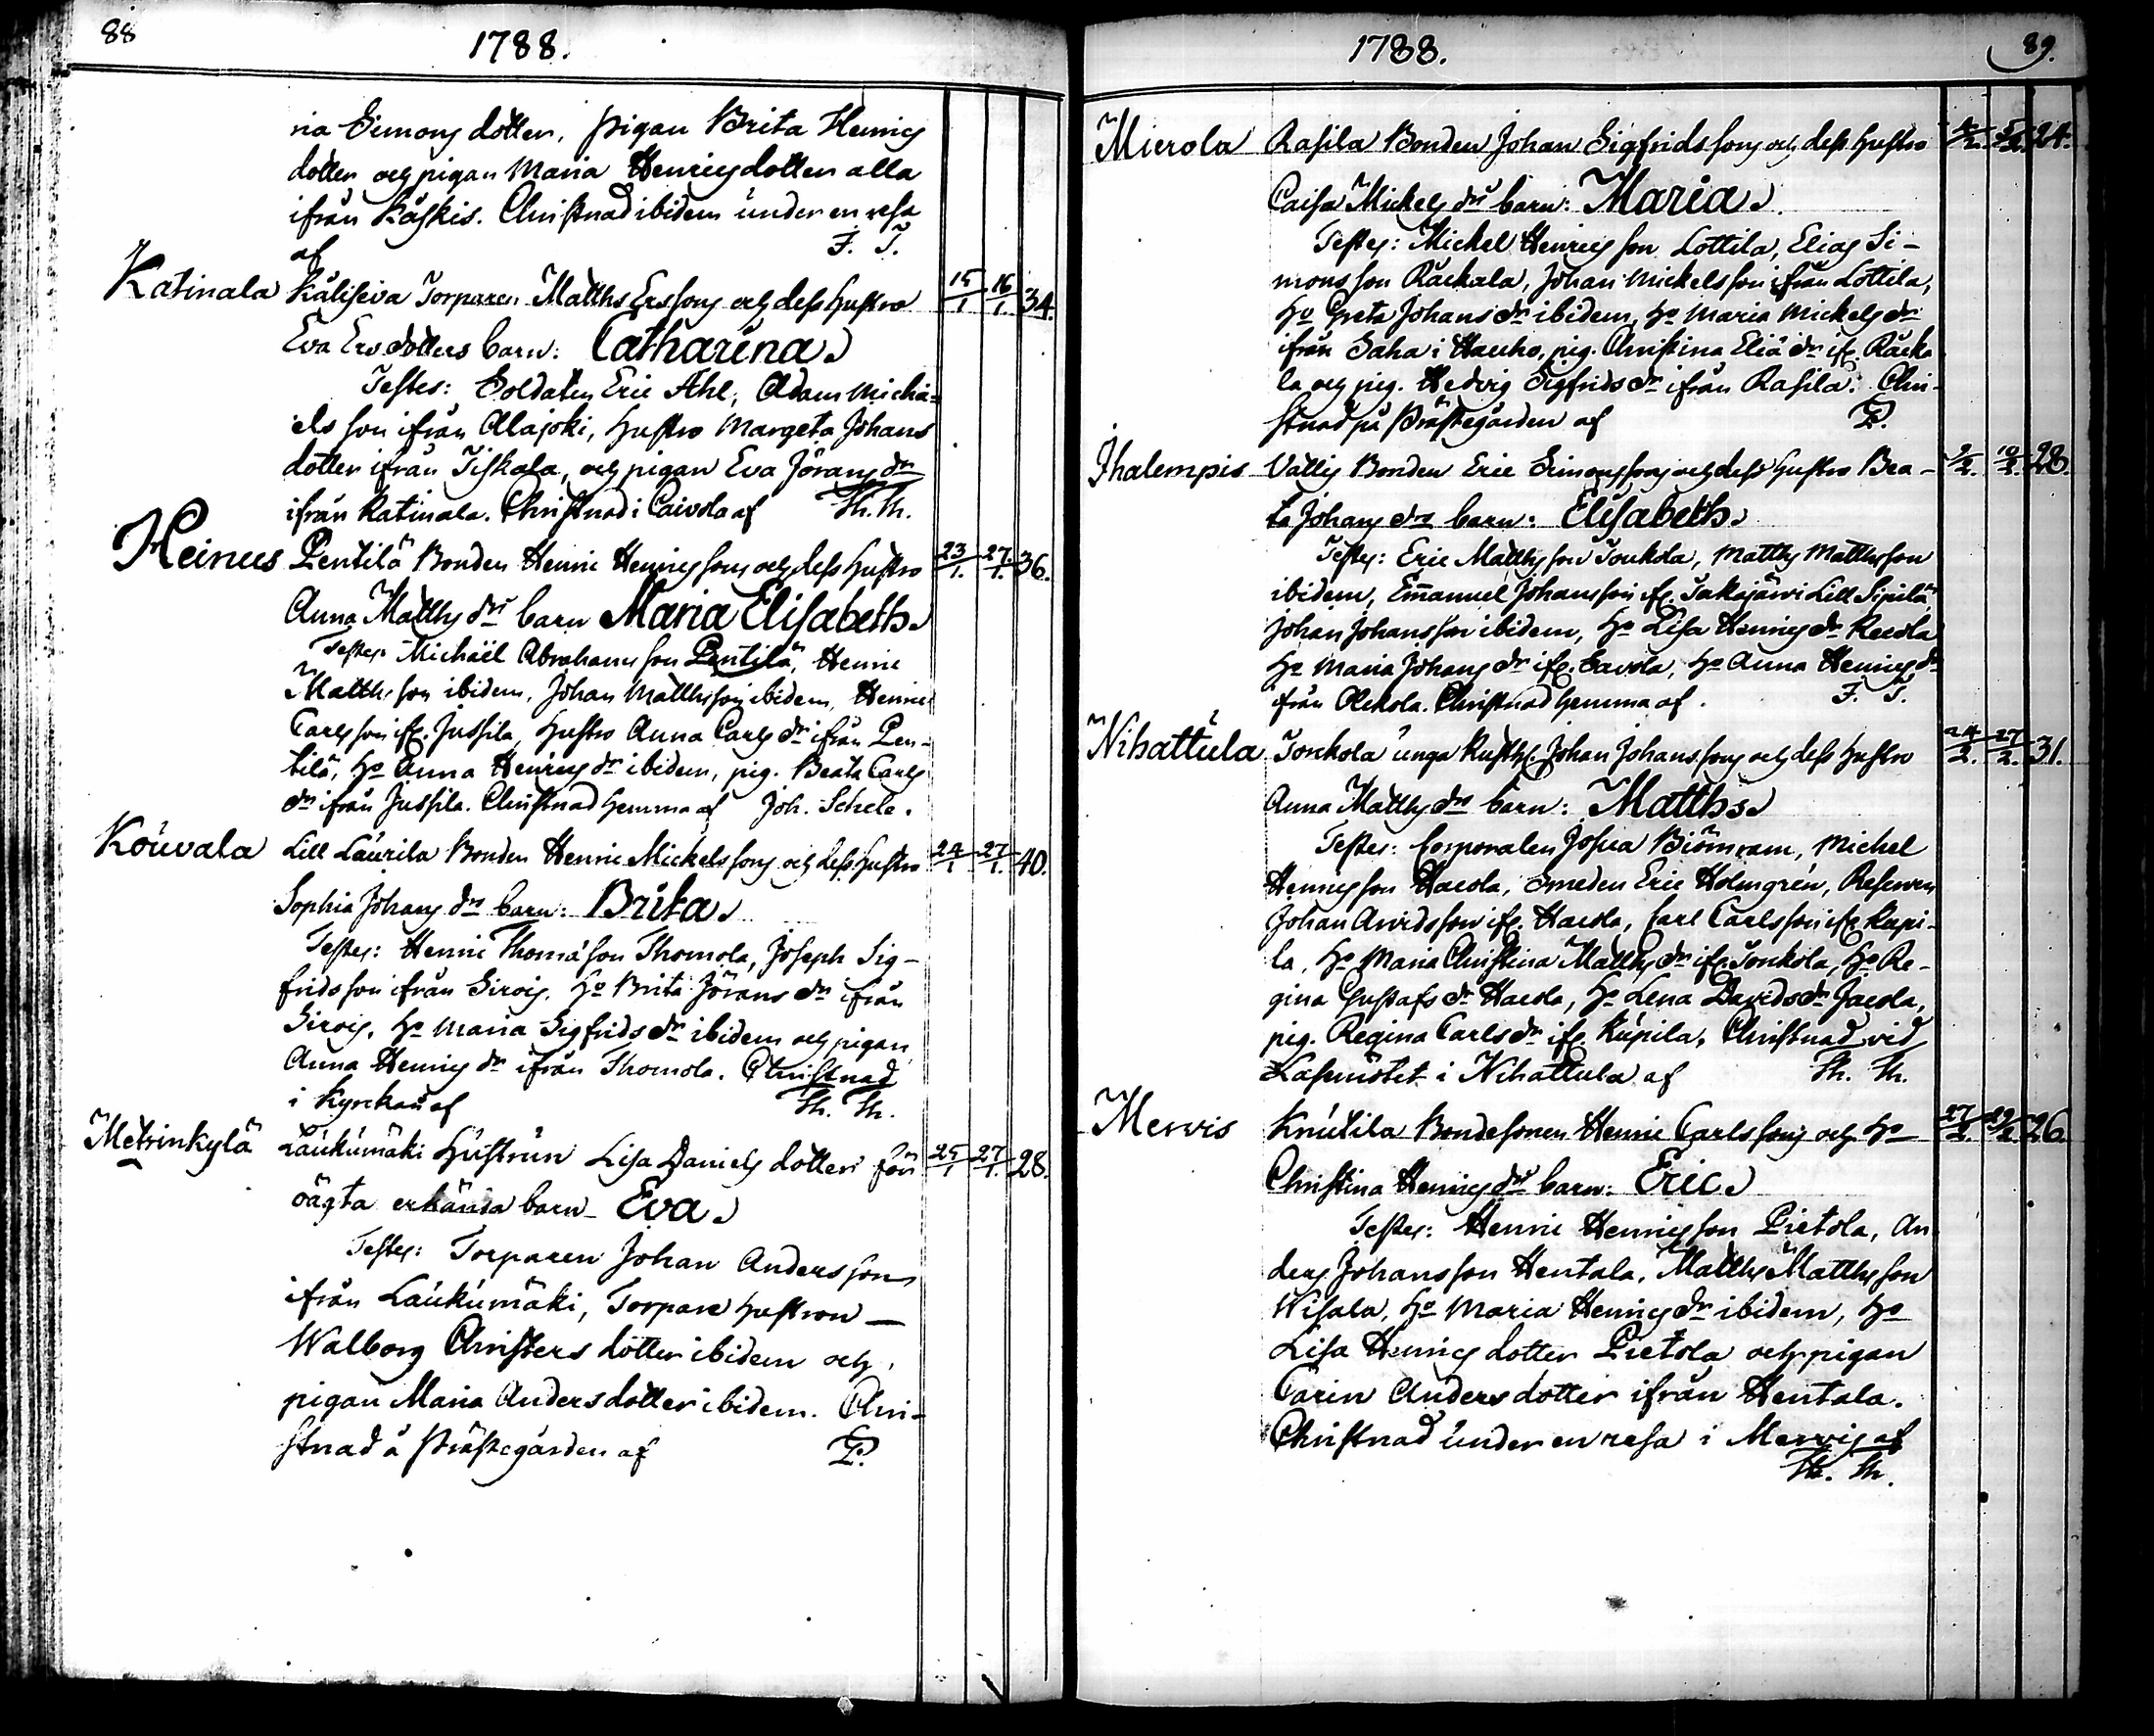 88
1788.
ria Simons dotter, pigan Brita Henrics
dotter och pigan Maria Henricsdotter alla
ifrån Käskis. Christnad ibidem under en resa
af F. T.
Katinala Käliseva Torparen Matths Erssons och dess hustro 15/1 16/1 34.
Eva Ersdotters barn: Catharina.
Testes: Soldaten Eric Ahl, Adam Micha=
els son ifrån Alajoki, hustro Margeta Johans
dotter ifrån Tiskala, och pigan Eva Jöransdr
ifrån Katinala. Christnad i Caivola af Th. Th.
Heinus Pentilä Bonden Henric Henricssons och dess hustro 23/1. 27/1. 36.
Anna Matthsdrs barn Maria Elisabeth.
Testes Michaël Abrahamsson Pentilä, Henric
Matthsson ibidem, Johan Matthsson ibidem, Henric
Carlsson ifr. Jussila, hustro Anna Carlsdr ifrån Pen-
tilä, ho Anna Henricsdr ibidem, pig. Beata Carls
dr ifrån Jussila. Christnad hemma af Joh. Schele.
Kouvala Lill Laurila Bonden Henric Mickelssons och dess hustro 24/1 27/1. 40.
Sophia Johansdrs barn: Brita.
Testes: Henric Thomasson Thomola, Joseph Sig-
fridsson ifrån Sirois. ho Brita Jöransdr ifrån
Sirois, ho Maria Sigfridsdr ibidem och pigan
Anna Henricsdr ifrån Thomola. Christnad
i Kyrckan af Th. Th.
Metsinkylä Laukumäki Hustrun Lisa Daniels dotters för 25/1 27/1. 28.
oägta erkända barn Eva.
Testes: Torparen Johan Andersson
ifrån Laukumäki, Torpare hustron
Walborg Christers dotter ibidem och
pigan Maria Andersdotter ibidem. Chri-
stnad å Prästegården af P.
1788.
89.
Mierola Rasila Bonden Johan Sigfridssons och dess hustro 4/2. 5/2. 24.
Caisa Mickelsdrs barn: Maria.
Testes: Mickel Henricsson Lottila, Elias Si-
monsson Räckala, Johan Mickelsson ifrån Lottila,
ho Greta Johansdr ibidem, ho Maria Mickelsdr
ifrån Saha i Hauho, pig. Christina Eliædr ifr. Räcka
la och pig. Hedvig Sigfridsdr ifrån Rasila. Chri-
stnad på Prästegården af P.
Ihalempis Vallis Bonden Eric Simonssons och dess hustro Bea- 9/2. 10/2. 28.
ta Johansdrs barn: Elisabeth.
Testes: Eric Matthsson Toukola, Matths Matthsson
ibidem, Emanuel Johansson ifr. Takajärvi Lill Sipilä
Johan Johansson ibidem, ho Lisa Henricsdr
ho Maria Johansdr ifr. Eavola, ho Anna Henricsdr
ifrån Alckola. Christnad hemma af F. T.
Nihattula Tonkola unga Rusth. Johan Johanssons och dess hustro 24/2. 27/2. 31.
Anna Matthsdrs barn: Matths.
Testes: Corporalen Josua Biörnram, Michel
Henricsson Haesla, Smeden Eric Holmgrén, Reserven
Johan Arvidsson ifr. Haesla, Carl Carlsson ifr. Kupi-
la, ho Maria Christina Matthsdr ifr. Tonkola, ho Re-
gina Gustafsdr Haesla, ho Lena Davidsdr Jaesla,
pig. Regina Carlsdr ifr. Kupila, Christnad vid
Läsmötet i Nihattula af Th. Th.
Mervis Knutila Bondesonen Henric Carlssons och ho 27/2. 29/2. 26.
Christina Henricsdrs barn: Eric.
Testes: Henric Henricsson Pietola, An
ders Johansson Hentala, Matths Matthsson
Wisala, ho Maria Henricsdr ibidem, ho
Lisa Henrics dotter Pietola och pigan
Carin Andersdotter ifrån Hentala.
Christnad under en resa i Mervis af
Th. Th.